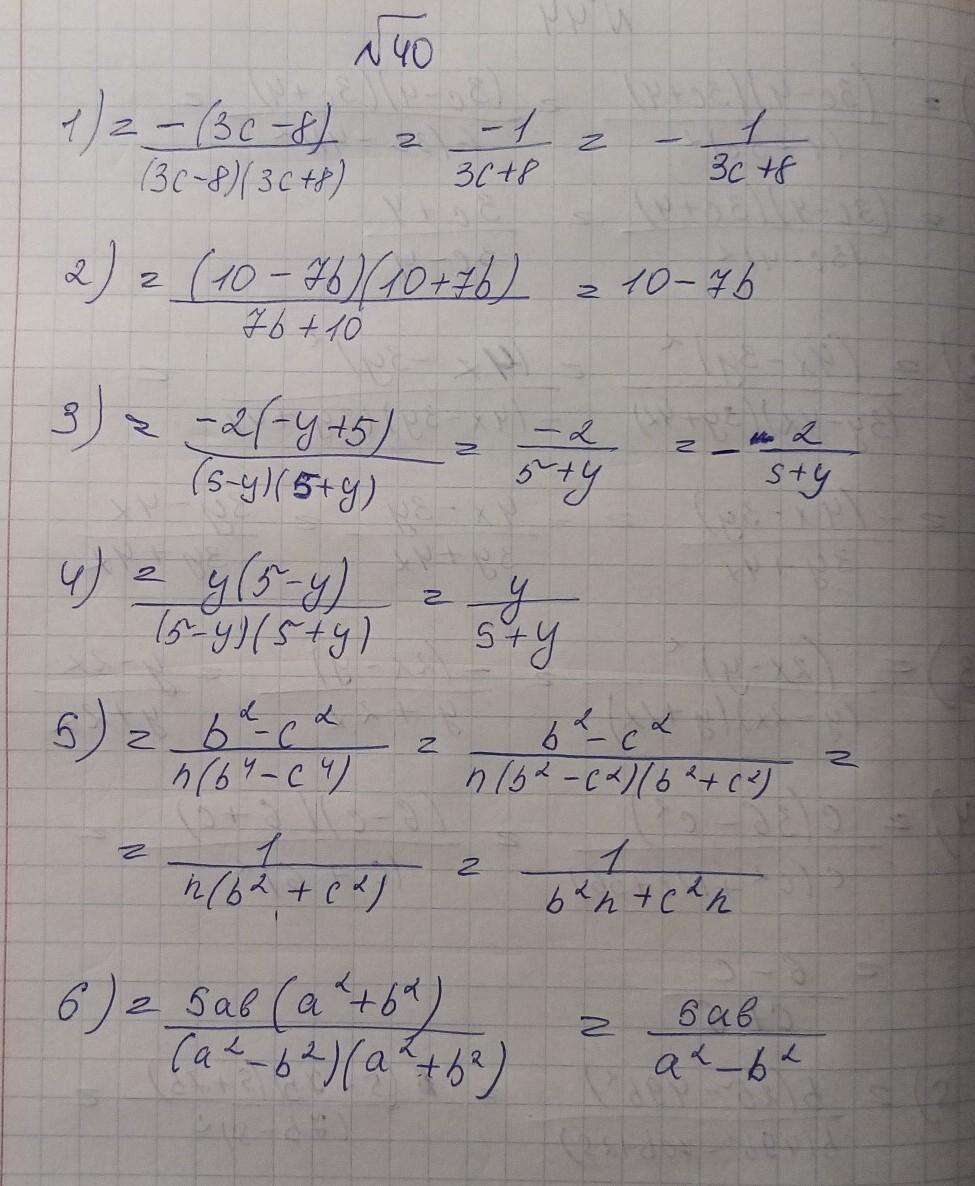 №40
1) = -(3c-8)/(3c-8)(3c+8) = -1/3c+8 = - 1/3c+8
2) = (10-7b)(10+7b)/7b+10 = 10-7b
3) = -2(-y+5)/(5-y)(5+y) = -2/5+y = - 2/5+y
4) = y(5-y)/(5-y)(5+y) = y/5+y
5) = b²-c²/n(b⁴-c⁴) = b²-c²/n(b²-c²)(b²+c²) =
= 1/n(b²+c²) = 1/b²n+c²n
6) = 5ab(a²+b²)/(a²-b²)(a²+b²) = 5ab/a²-b²